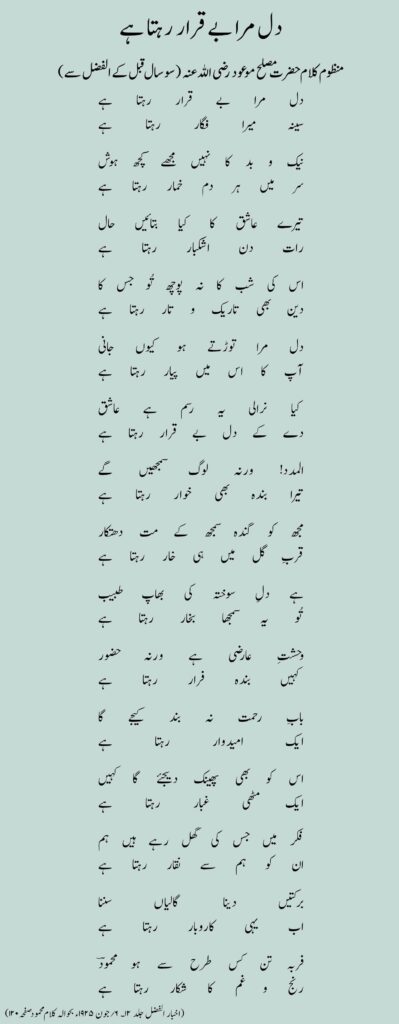 دل مرا بے قرار رہتا ہے
منظوم کلام حضرت مصلح موعود رضی اللہ عنہ (سو سال قبل کے الفضل سے)
دل مرا بے قرار رہتا ہے
سینہ میرا فگار رہتا ہے
نیک و بد کا نہیں مجھے کچھ ہوش
سر میں ہر دم خمار رہتا ہے
تیرے عاشق کا کیا بتائیں حال
رات دن اشکبار رہتا ہے
اس کی شب کا نہ پوچھ تُو جس کا
دین بھی تاریک و تار رہتا ہے
دل مرا توڑتے ہو کیوں جانی
آپ کا اس میں پیار رہتا ہے
کیا نرالی یہ رسم ہے عاشق
دے کے دل بے قرار رہتا ہے
المدد! ورنہ لوگ سمجھیں گے
تیرا بندہ بھی خوار رہتا ہے
مجھ کو گندہ سمجھ کے مت دھتکار
قربِ گل میں ہی خار رہتا ہے
ہے دلِ سوختہ کی بھاپ طبیب
تُو یہ سمجھا بخار رہتا ہے
وحشتِ عارضی ہے ورنہ حضور
کہیں بندہ فرار رہتا ہے
باب رحمت نہ بند کیجے گا
ایک امیدوار رہتا ہے
اس کو بھی پھینک دیجئے گا کہیں
ایک مٹھی غبار رہتا ہے
فکر میں جس کی گھل رہے ہیں ہم
ان کو ہم سے نقار رہتا ہے
برکتیں دینا گالیاں سننا
اب یہی کاروبار رہتا ہے
فربہ تن کس طرح سے ہو محمودؔ
رنج و غم کا شکار رہتا ہے
(اخبار الفضل جلد ۱۲۔ ۶؍جون ۱۹۲۵ء۔ بحوالہ کلام محمود صفحہ ۱۲۰)